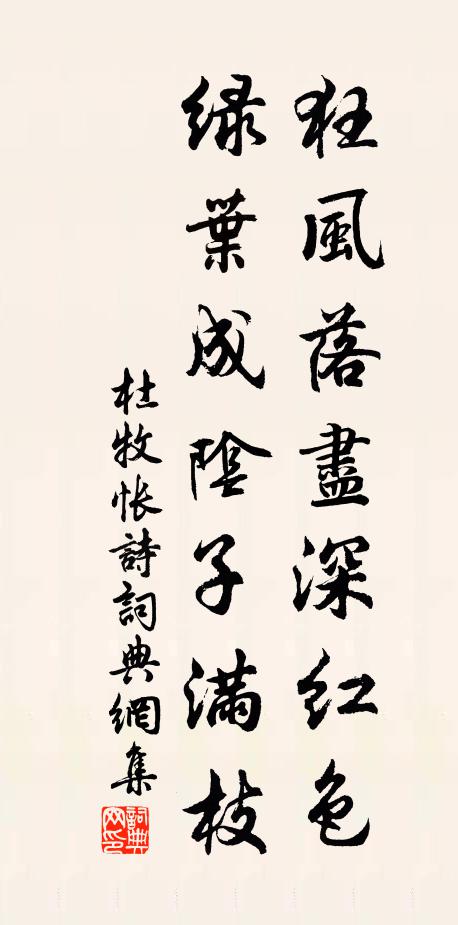 狂風落盡深紅色
緑葉成陰子滿枝
杜牧悵詩詞典網集
詞典网印